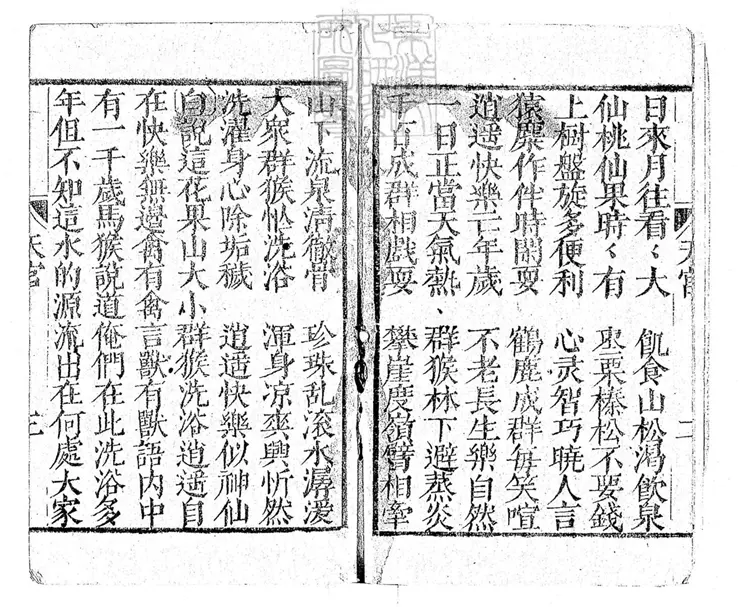 天官 二
日來月往看〻大 飢食山松渴飲泉
仙桃仙果時〻有 枣栗榛松不要錢
上樹盤旋多便利 心灵智巧曉人言
猿麋作伴時閙耍 鶴鹿成群每笑喧
逍遥快樂亡年歲 不老長生樂自然
一日正當天氣熱、 群猴林下避蒸炎
千百成群相戲耍 攀崖度嶺臂相牽
山下流泉清徹骨 珍珠乱滚水潺湲
大衆群猴忙洗浴 渾身凉爽興忻然
洗濯身心除垢穢 逍遥快樂似神仙
白說這花果山大小群猴洗浴逍遥自
在快樂無邊禽有禽言獸有獸語内中
有一千歲馬猴說道俺們在此洗浴多
年但不知這水的源流出在何處大家
天官 三